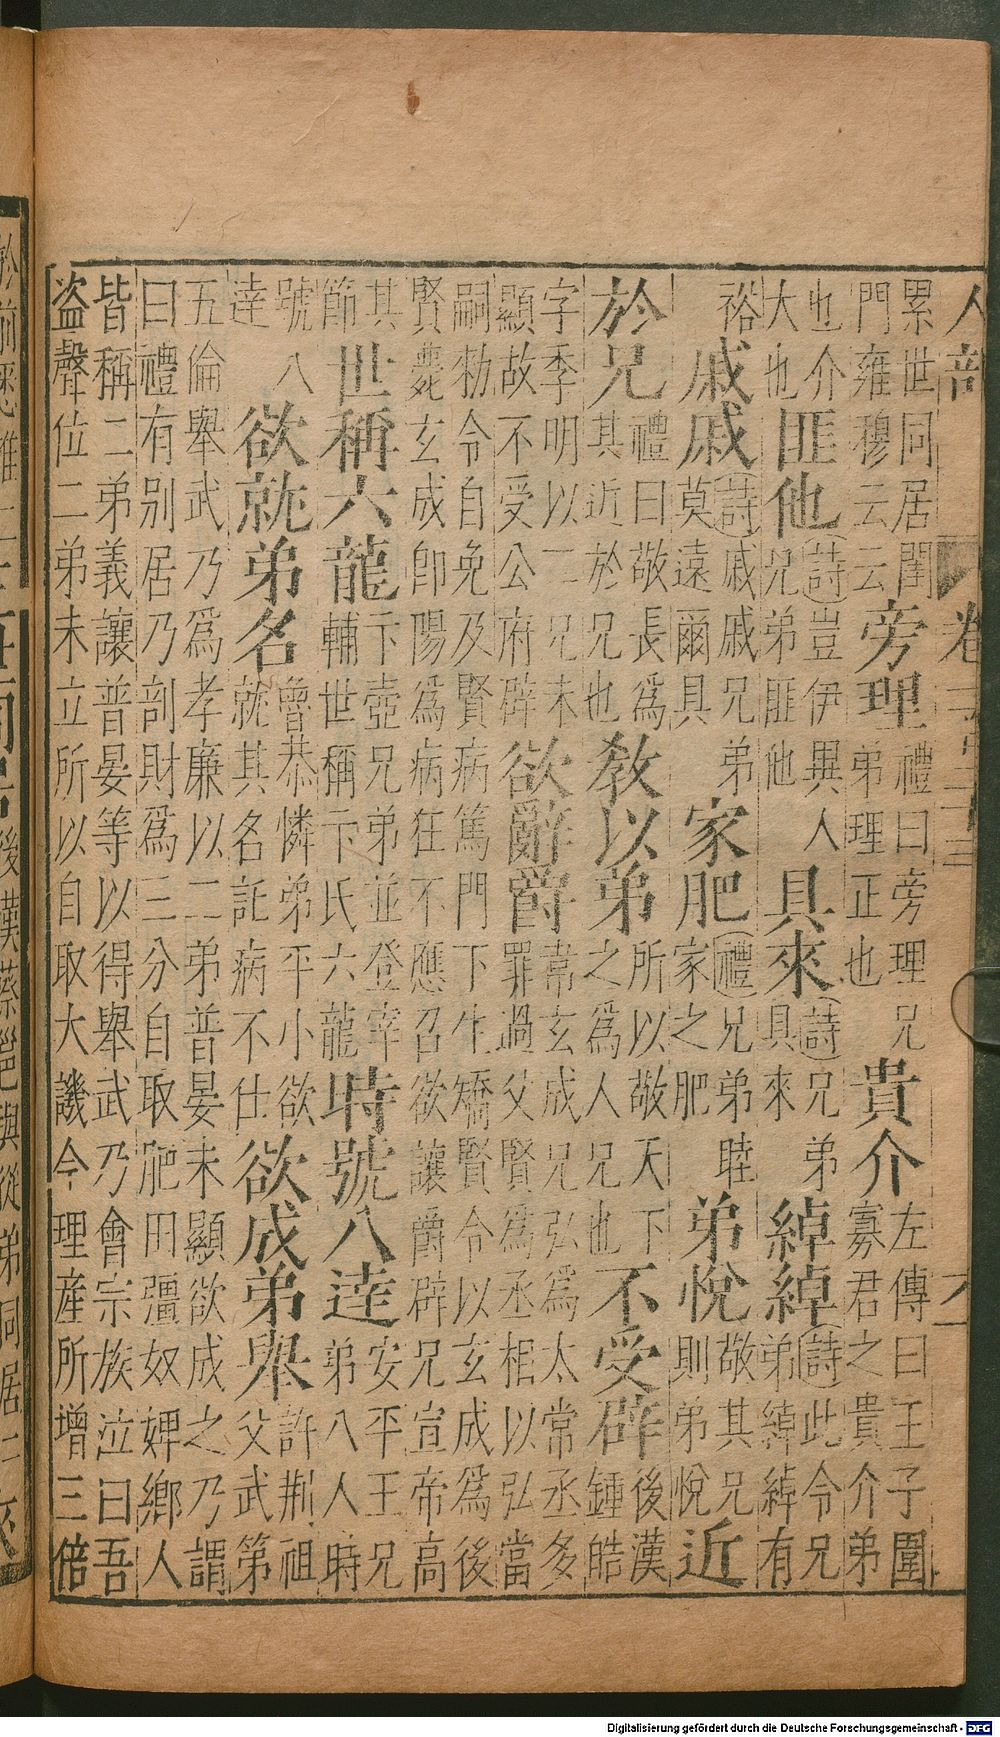 人部
卷
累世同居閨
門雍穆云云
旁理
禮曰旁理兄
弟理正也
貴介
左傳曰王子圍
寡君之貴介弟
也介
大也
匪他
詩豈伊異人
兄弟匪他
具來
詩兄弟
具來
綽綽
詩此令兄
弟綽綽有
裕
戚戚
詩戚戚兄弟
莫遠爾具
家肥
禮兄弟睦
家之肥
弟悅
敬其兄
則弟悅
近
於兄
禮曰敬長爲
其近於兄也
教以弟
所以敬天下
之爲人兄也
不受辟
後漢
鍾皓
字季明以二兄未
顯故不受公府辟
欲辭爵
韋玄成兄弘爲太常丞多
罪過父賢爲丞相以弘當
嗣勑令自免及賢病篤門下生矯賢令以玄成爲後
賢薨玄成卽陽爲病狂不應召欲讓爵辟兄宣帝高
其
節
世稱六龍
卞壺兄弟並登宰
輔世稱卞氏六龍
時號八達
安平王兄
弟八人時
號八
達
欲就弟名
魯恭憐弟平小欲
就其名託病不仕
欲成弟舉
許荆祖
父武第
五倫舉武乃爲孝廉以二弟普晏未顯欲成之乃謂
曰禮有別居乃剖財爲三分自取肥田彊奴婢鄉人
皆稱二弟義讓普晏等以得舉武乃會宗族泣曰吾
盜聲位二弟未立所以自取大譏今理產所增三倍
後漢蔡邕與從弟同居
Digitalisierung gefördert durch die Deutsche Forschungsgemeinschaft - DFG